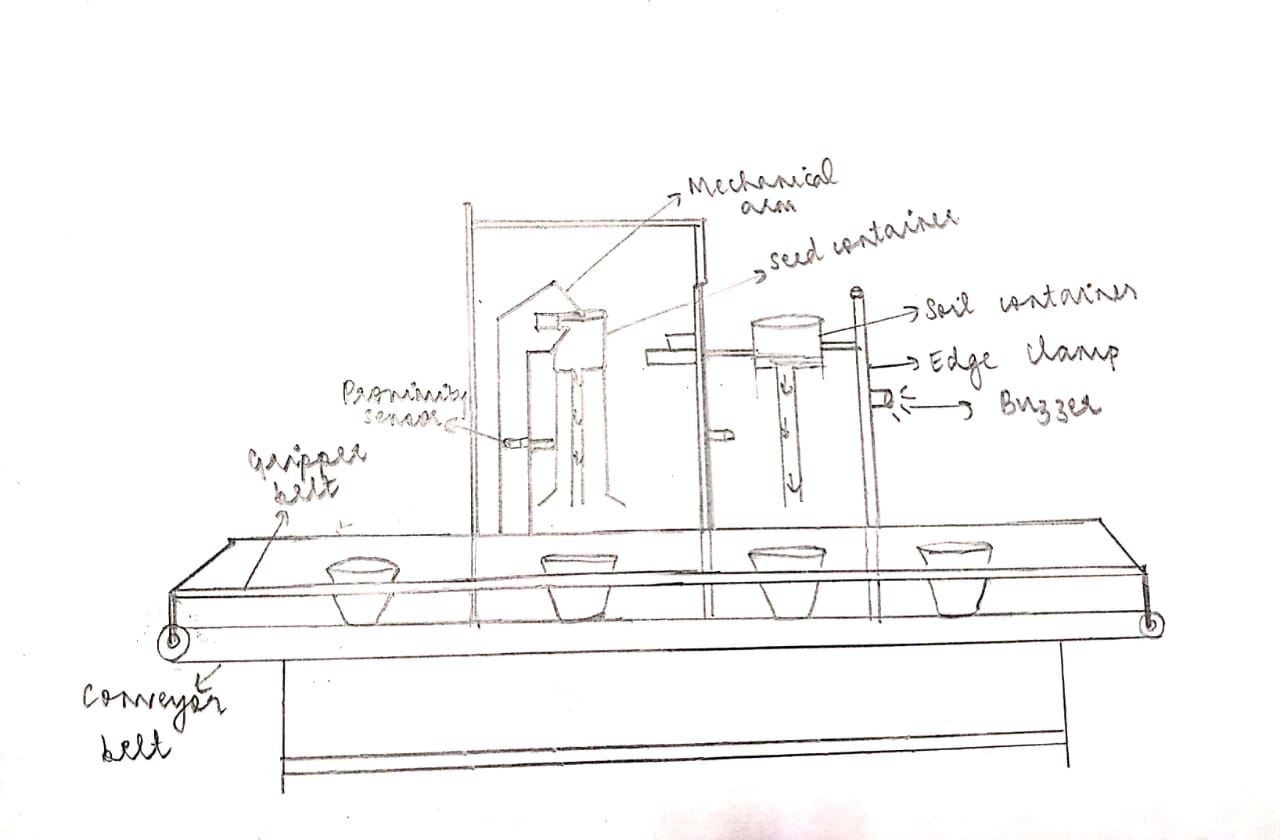 Mechanical
arm
seed container
Soil container
Edge clamp
Buzzer
Proximity
sensor
Gripper
belt
Conveyor
belt